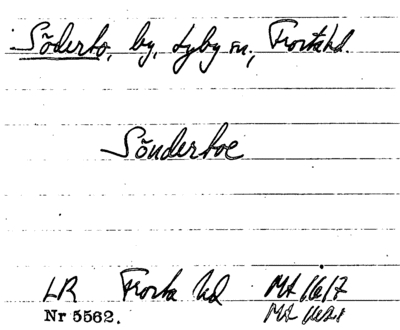 Söderbo, by, Lyby sn, Frosta hd.
Sönderboe
LR Frosta hd Mt 1617
Nr 5562. Mt